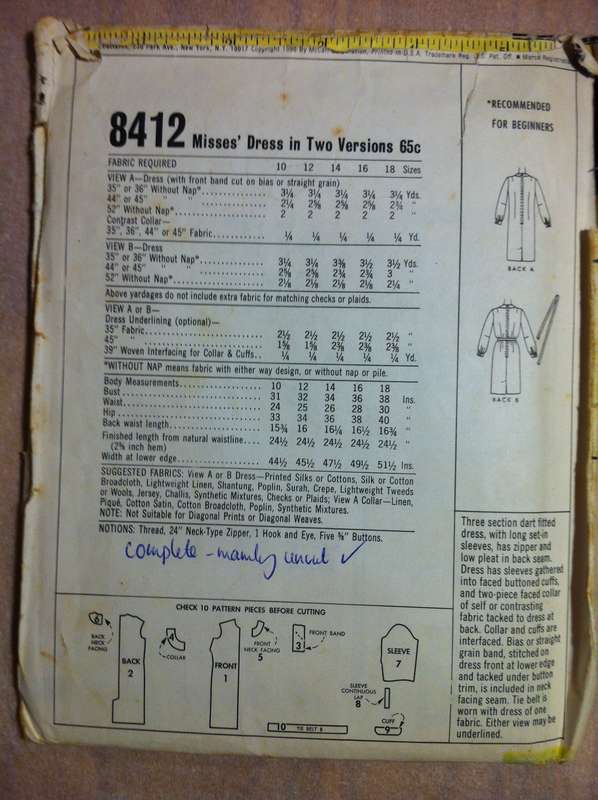 Patterns, 230 Park Ave., New York, N.Y. 10017 Copyright 1966 by McCall Corporation, Printed in U.S.A. Trademark Reg. U.S. Pat. Off. ★ Marca Registrada
8412 Misses' Dress in Two Versions 65c
FABRIC REQUIRED 10 12 14 16 18 Sizes
VIEW A—Dress (with front band cut on bias or straight grain)
35" or 36" Without Nap* 3¼ 3¼ 3¼ 3¼ 3¼ Yds.
44" or 45" " " 2¼ 2⅝ 2⅝ 2⅝ 2¾ "
52" Without Nap* 2 2 2 2 2 "
Contrast Collar—
35", 36", 44" or 45" Fabric ¼ ¼ ¼ ¼ ¼ Yd.
VIEW B—Dress
35" or 36" Without Nap* 3¼ 3¼ 3⅜ 3½ 3½ Yds.
44" or 45" " " 2⅝ 2⅝ 2¾ 2¾ 3 "
52" Without Nap* 2⅛ 2⅛ 2⅛ 2⅛ 2¼ "
Above yardages do not include extra fabric for matching checks or plaids.
VIEW A or B—
Dress Underlining (optional)—
35" Fabric 2½ 2½ 2½ 2½ 2½ "
45" " 1⅝ 1⅝ 2⅜ 2⅜ 2⅜ "
39" Woven Interfacing for Collar & Cuffs ¼ ¼ ¼ ¼ ¼ Yd.
*WITHOUT NAP means fabric with either way design, or without nap or pile.
Body Measurements 10 12 14 16 18
Bust 31 32 34 36 38 Ins.
Waist 24 25 26 28 30 "
Hip 33 34 36 38 40 "
Back waist length 15¾ 16 16¼ 16½ 16¾ "
Finished length from natural waistline 24½ 24½ 24½ 24½ 24½ "
(2⅝ inch hem)
Width at lower edge 44½ 45½ 47½ 49½ 51½ Ins.
SUGGESTED FABRICS: View A or B Dress—Printed Silks or Cottons, Silk or Cotton
Broadcloth, Lightweight Linen, Shantung, Poplin, Surah, Crepe, Lightweight Tweeds
or Wools, Jersey, Challis, Synthetic Mixtures, Checks or Plaids; View A Collar—Linen,
Piqué, Cotton Satin, Cotton Broadcloth, Poplin, Synthetic Mixtures.
NOTE: Not Suitable for Diagonal Prints or Diagonal Weaves.
NOTIONS: Thread, 24" Neck-Type Zipper, 1 Hook and Eye, Five ⅝" Buttons.
complete - mainly uncut ✓
*RECOMMENDED
FOR BEGINNERS
BACK A
BACK B
Three section dart fitted
dress, with long set-in
sleeves, has zipper and
low pleat in back seam.
Dress has sleeves gathered
into faced buttoned cuffs,
and two-piece faced collar
of self or contrasting
fabric tacked to dress at
back. Collar and cuffs are
interfaced. Bias or straight
grain band, stitched on
dress front at lower edge
and tacked under button
trim, is included in neck
facing seam. Tie belt is
worn with dress of one
fabric. Either view may be
underlined.
CHECK 10 PATTERN PIECES BEFORE CUTTING
6
BACK NECK FACING
BACK 2
4
COLLAR
FRONT 1
FRONT NECK FACING
5
3
FRONT BAND
SLEEVE 7
SLEEVE CONTINUOUS LAP
8
CUFF
9
10 TIE BELT B